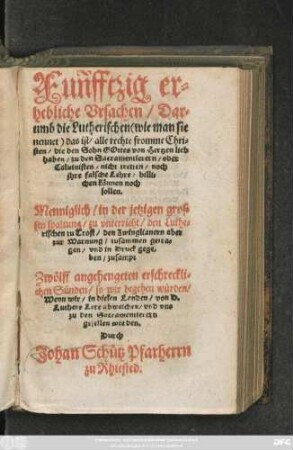 Fünfftzig er-
hebliche Vrsachen / Dar-
umb die Lutherischen (wie man sie
nennet) das ist / alle rechte fromme Chri-
sten / die den Sohn GOttes von Hertzen lieb
haben / zu den Sacramentierern / oder
Caluinisten / nicht tretten / noch
jhre falsche Lehre / billi-
chen können noch
sollen.
Menniglich / in der jetzigen gros-
sen spaltung / zu vnterricht / den Luthe-
rischen zu Trost / den Zwinglianern aber
zur Warnung / zusammen getra-
gen / vnd in Druck gege-
ben / zusampt
Zwölff angehengeten erschreckli-
chen Sünden / so wir begehen würden /
Wenn wir / in diesen Landen / von D.
Luthers Lere abweichen / vnd vns
zu den Sacramentierern
gesellen würden.
Durch
Johan Schütz Pfarherrn
zu Rhiested.